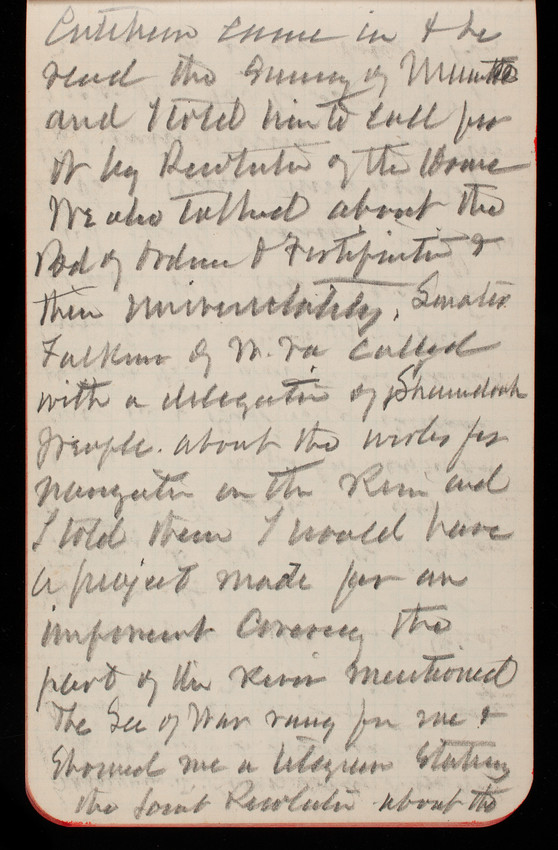 Cutcheon came in & he
read the
and I told him to call for
it by Resolution of the House
We also talked about the
Bd of Ordnce & Fortification &
their Senator
Faulkner of W. Va called
with a delegation of Shenandoah
people about the works for
navigation on the River and
I told them I would have
a project made for an
improvement covering the
part of the River mentioned
The Sec of War rang for me &
showed me a telegram stating
the Joint Resolution about the